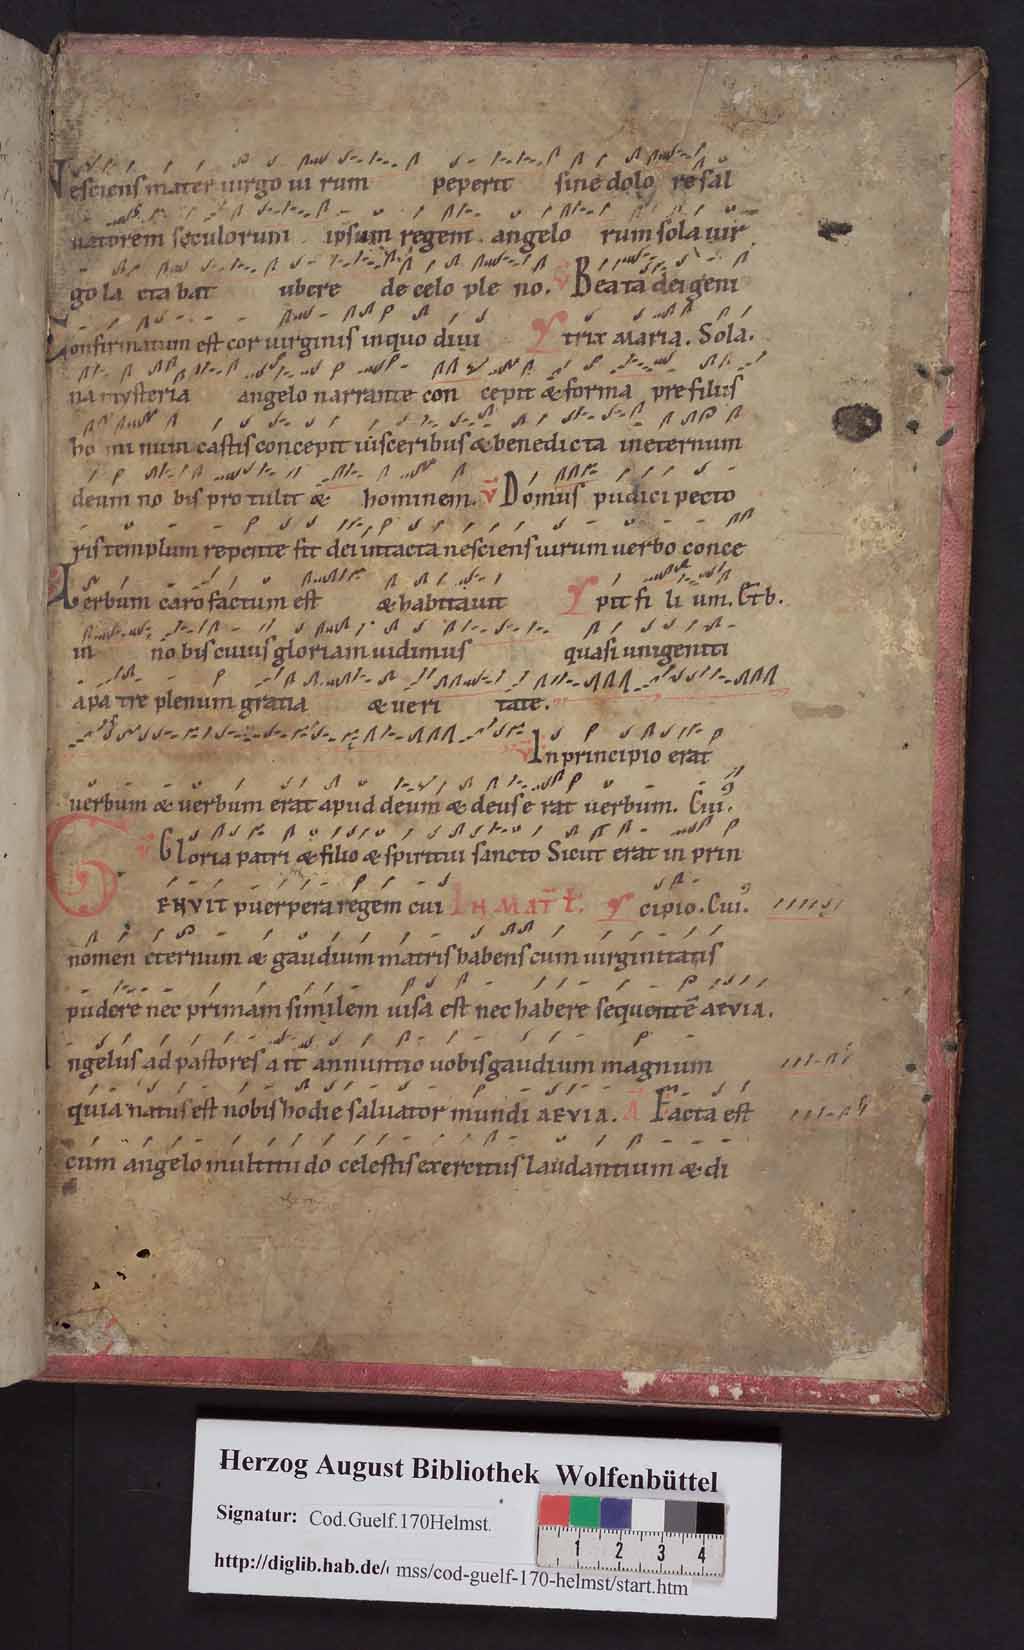 Nesciens mater uirgo ui rum peperit sine dolo re sal
uatorem seculorum. ipsum regem. angelo rum sola uir
go la cta bat ubere de celo ple no. V̄ Beata dei geni
Confirmatum est cor uirginis in quo diui Y trix maria. Sola.
na mysteria angelo narrante con cepit & forma pre filiis
ho mi num castis concepit uisceribus & benedicta in eternum
deum no bis pro tulit & hominem. V̄ Domus pudici pecto
ris templum repente fit dei intacta nesciens uirum uerbo conce
Verbum caro factum est & habitauit Y pit fi li um. Et b.
in no bis cuius gloriam uidimus quasi unigeniti
a pa tre plenum gratia & ueri tate.
V̄ In principio erat
uerbum & uerbum erat apud deum & deus e rat uerbum. Cui9.
V̄ Gloria patri & filio & spiritui sancto Sicut erat in prin
GENVIT puerpera regem cui IN MAT t̄. Y cipio. Cui9.
nomen eternum & gaudium matris habens cum uirginitatis
pudere nec primam similem uisa est nec habere sequentē aeuia.
Angelus ad pastores a it annuntio uobis gaudium magnum
quia natus est nobis hodie saluator mundi aeuia. A Facta est
cum angelo multitu do celestis exercitus laudantium & di
Herzog August Bibliothek Wolfenbüttel
Signatur: Cod.Guelf.170Helmst.
http://diglib.hab.de/ mss/cod-guelf-170-helmst/start.htm
1 2 3 4